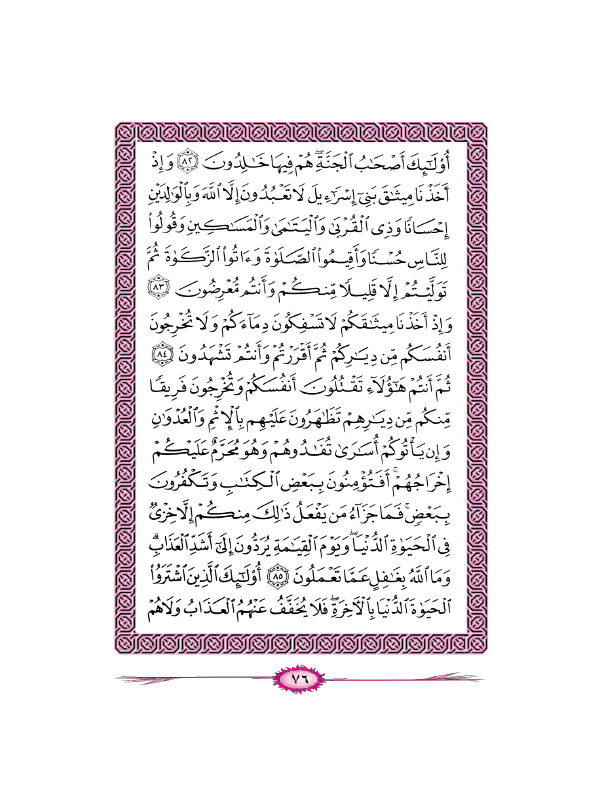 أُوْلَٰٓئِكَ أَصْحَابُ الْجَنَّةِۖ هُمْ فِيهَا خَالِدُونَ ﴿٨٢﴾ وَإِذْ
أَخَذْنَا مِيثَٰقَ بَنِيٓ إِسْرَٰٓءِيلَ لَا تَعْبُدُونَ إِلَّا اللَّهَ وَبِالْوَالِدَيْنِ
إِحْسَانًا وَذِي الْقُرْبَىٰ وَالْيَتَٰمَىٰ وَالْمَسَٰكِينِ وَقُولُواْ
لِلنَّاسِ حُسْنًا وَأَقِيمُواْ الصَّلَوٰةَ وَءَاتُواْ الزَّكَوٰةَ ثُمَّ
تَوَلَّيْتُمْ إِلَّا قَلِيلًا مِّنكُمْ وَأَنتُم مُّعْرِضُونَ ﴿٨٣﴾
وَإِذْ أَخَذْنَا مِيثَٰقَكُمْ لَا تَسْفِكُونَ دِمَآءَكُمْ وَلَا تُخْرِجُونَ
أَنفُسَكُم مِّن دِيَٰرِكُمْ ثُمَّ أَقْرَرْتُمْ وَأَنتُمْ تَشْهَدُونَ ﴿٨٤﴾
ثُمَّ أَنتُمْ هَٰٓؤُلَآءِ تَقْتُلُونَ أَنفُسَكُمْ وَتُخْرِجُونَ فَرِيقًا
مِّنكُم مِّن دِيَٰرِهِمْ تَظَٰهَرُونَ عَلَيْهِم بِالْإِثْمِ وَالْعُدْوَانِ
وَإِن يَأْتُوكُمْ أُسَٰرَىٰ تُفَٰدُوهُمْ وَهُوَ مُحَرَّمٌ عَلَيْكُمْ
إِخْرَاجُهُمْۚ أَفَتُؤْمِنُونَ بِبَعْضِ الْكِتَٰبِ وَتَكْفُرُونَ
بِبَعْضٍۚ فَمَا جَزَآءُ مَن يَفْعَلُ ذَٰلِكَ مِنكُمْ إِلَّا خِزْيٌ
فِي الْحَيَوٰةِ الدُّنْيَاۖ وَيَوْمَ الْقِيَٰمَةِ يُرَدُّونَ إِلَىٰٓ أَشَدِّ الْعَذَابِۗ
وَمَا اللَّهُ بِغَٰفِلٍ عَمَّا تَعْمَلُونَ ﴿٨٥﴾ أُوْلَٰٓئِكَ الَّذِينَ اشْتَرَوُاْ
الْحَيَوٰةَ الدُّنْيَا بِالْأَخِرَةِۖ فَلَا يُخَفَّفُ عَنْهُمُ الْعَذَابُ وَلَا هُمْ
٧٦